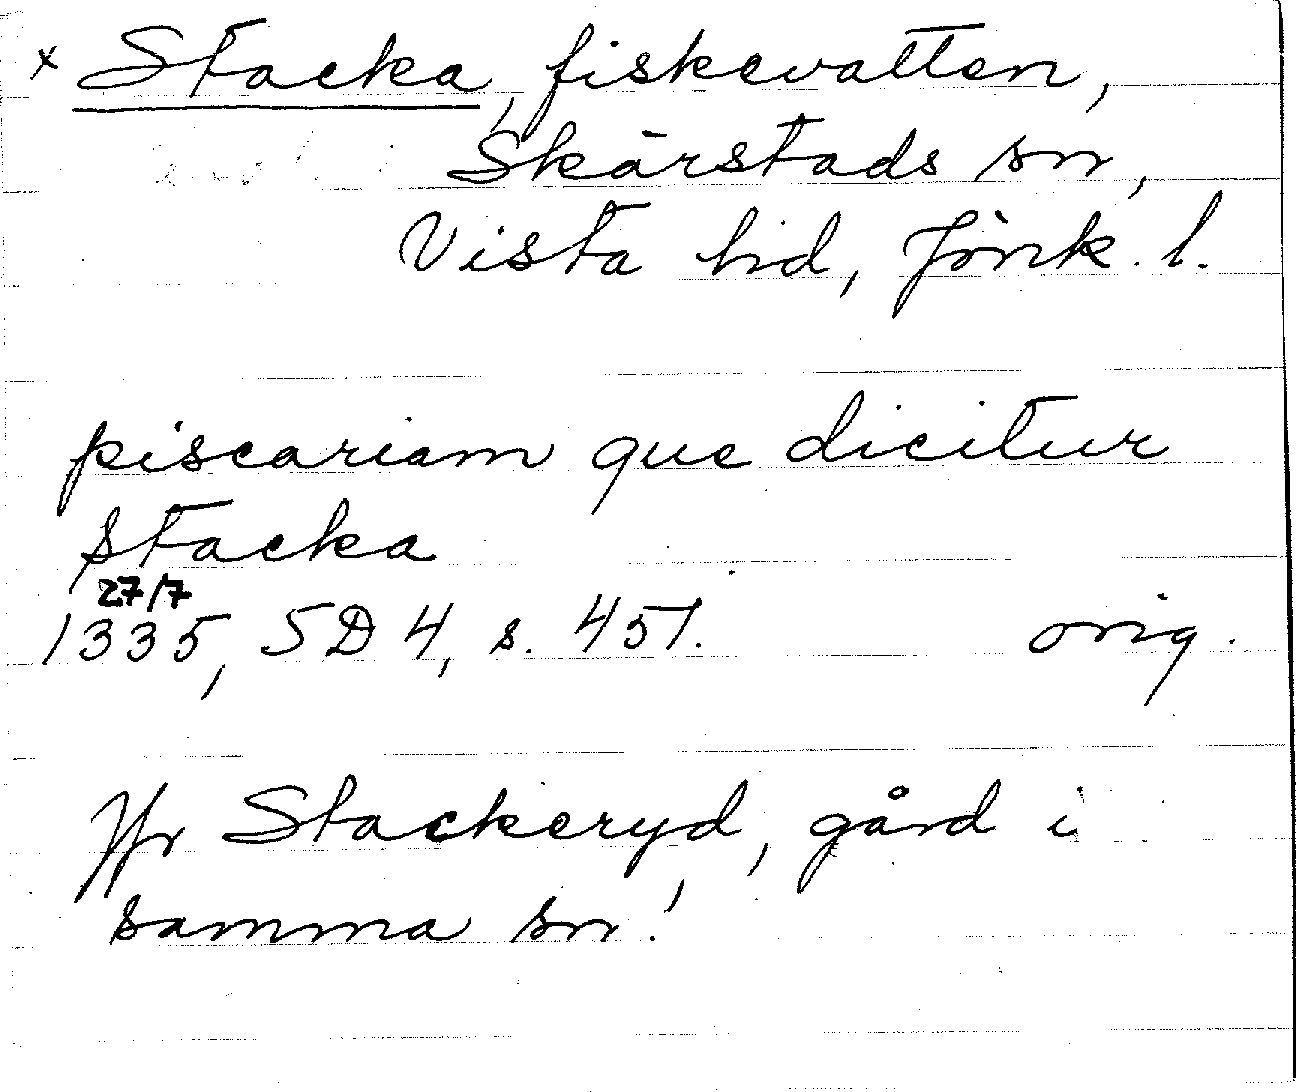 x Stacka, fiskevatten,
Skärstads sn,
Vista hd, Jönk. l.
piscariam que dicitur
stacka
27/7
1335, SD 4, s. 451. orig.
Jfr Stackeryd, gård i
samma sn!